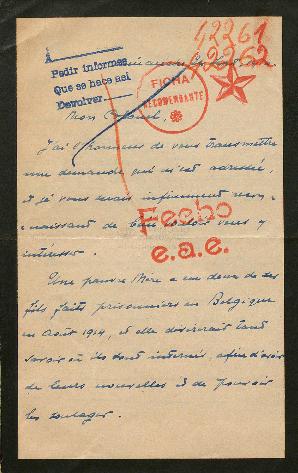 42261
42262
A
Pedir informes
Que se hace así
Devolver
FICHA
RECOMENDANTE
Mon Colonel,
J'ai l'honneur de vous transmettre
une demande qui m'est adressée,
et je vous serais infiniment recon-
naissant de bien vouloir vous y
intéresser.
Fecho
e.a.e.
Une pauvre Mère a eu deux de ses
fils faits prisonniers en Belgique
en Août 1914, et elle désirerait tant
savoir où ils sont internés, afin d'avoir
de leurs nouvelles et de pouvoir
les soulager.